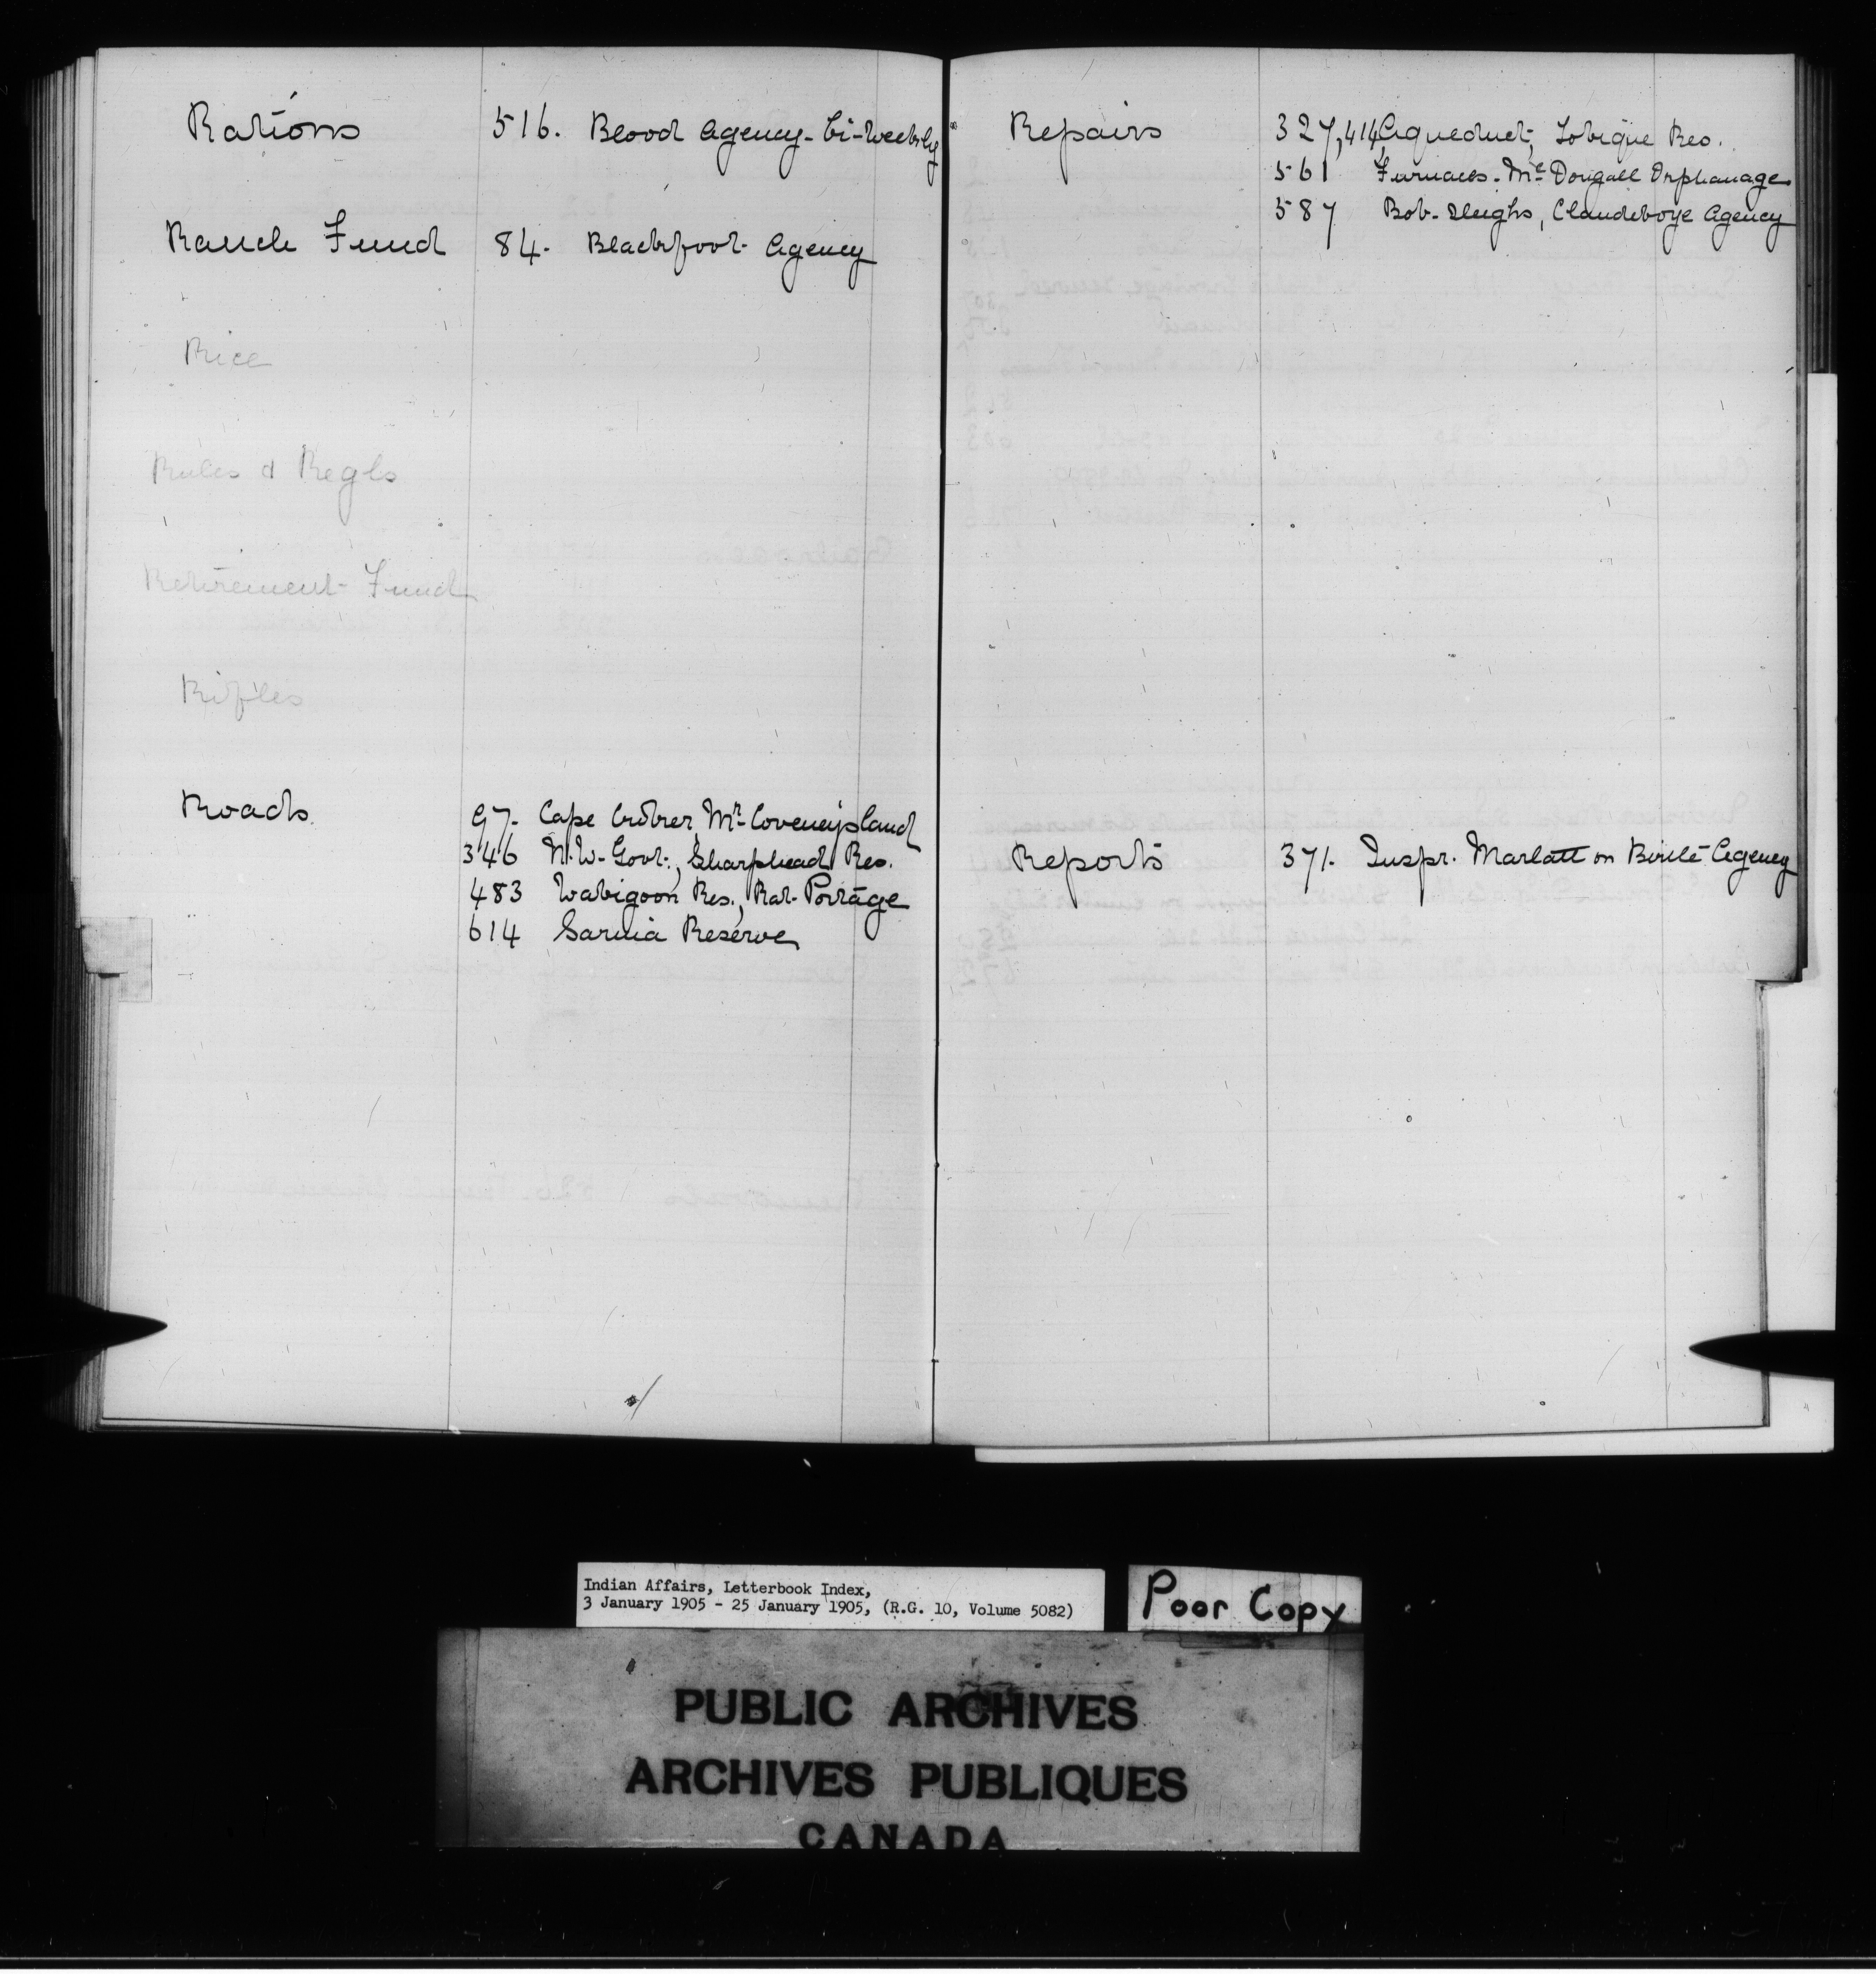 Rations 516. Blood Agency - bi-weekly
Ranch Fund 84. Blackfoot Agency
Rice
Rules & Regls
Retirement Fund
Rifles
Roads. 97. Cape Croker, Mr. Coveney's land
346 N.W. Govt., Sharphead Res.
483 Wabigoon Res., Rat Portage
614 Sarnia Reserve
Repairs 327, 414, Aqueduct, Tobique Res.
561 Furnaces. McDougall Orphanage
587 Bob-sleighs, Clandeboye Agency
Reports 371. Inspr. Marlatt on Birtle Agency
Indian Affairs, Letterbook Index,
3 January 1905 - 25 January 1905, (R.G. 10, Volume 5082)
Poor Copy
PUBLIC ARCHIVES
ARCHIVES PUBLIQUES
CANADA